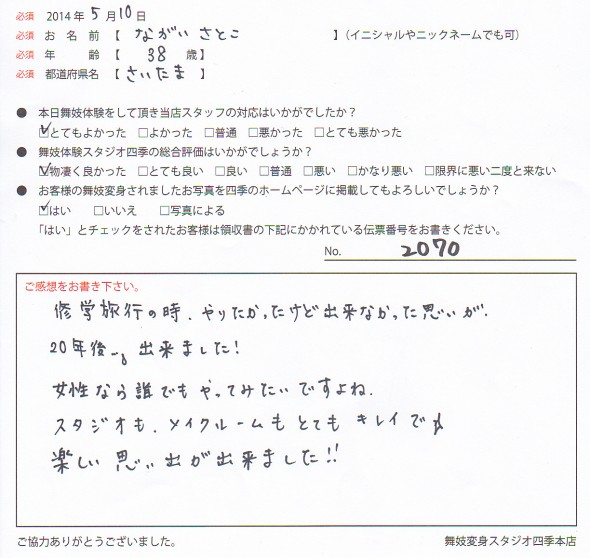 必須 2014年 5月10日
必須 お名前【 ながい さとこ 】（イニシャルやニックネームでも可）
必須 年齢【 38 歳】
必須 都道府県名【 さいたま 】
● 本日舞妓体験をして頂き当店スタッフの対応はいかがでしたか？
☑とてもよかった □よかった □普通 □悪かった □とても悪かった
● 舞妓体験スタジオ四季の総合評価はいかがでしょうか？
☑物凄く良かった □とても良い □良い □普通 □悪い □かなり悪い □限界に悪い二度と来ない
● お客様の舞妓変身されましたお写真を四季のホームページに掲載してもよろしいでしょうか？
☑はい □いいえ □写真による
「はい」とチェックをされたお客様は領収書の下記にかかれている伝票番号をお書きください。
No. 2070
ご感想をお書き下さい。
修学旅行の時、やりたかったけど出来なかった思いが、
20年後 出来ました！
女性なら誰でもやってみたいですよね。
スタジオも、メイクルームもとてもキレイで
楽しい思い出が出来ました!!
ご協力ありがとうございました。
舞妓変身スタジオ四季本店